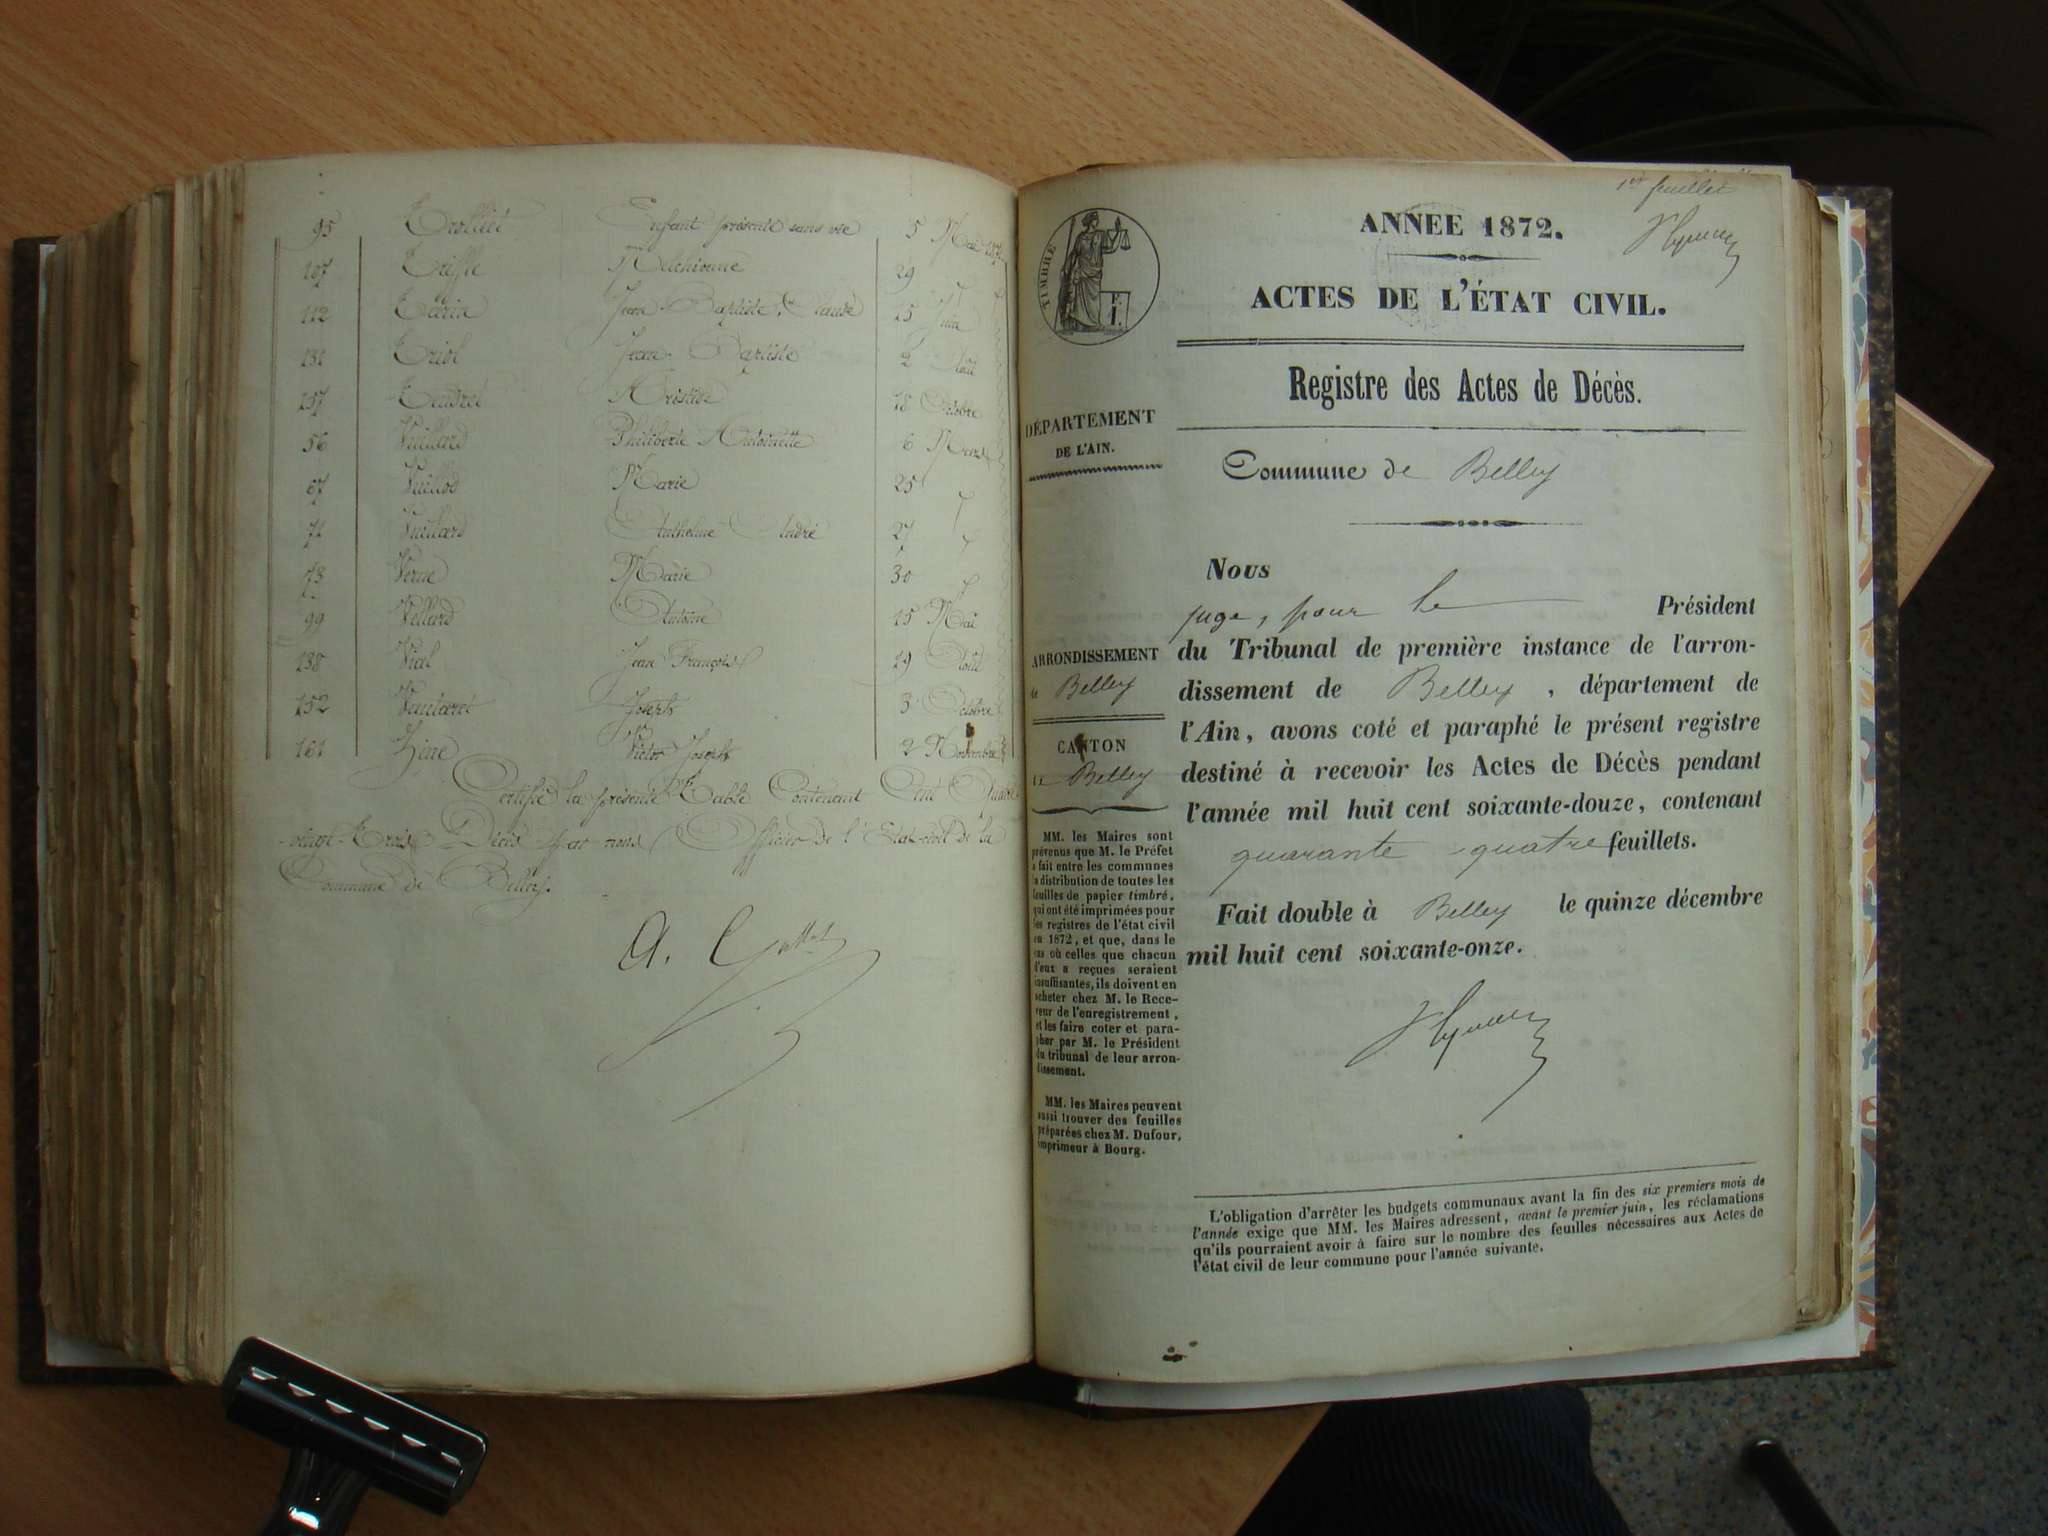 95 Enfant présenté sans vie 5 Mai
107 29
112 Jean-Baptiste, Claude 15 Juin
131 Triol Jean-Baptiste 2 Août
157 Tendret Aristide 18 Octobre
56 Vuillard Philiberte Antoinette 6 Mars
67 Vuillod Marie 25
71 Vuillard Anthelme André 27
73 Verne Marie 30
99 Vellard Antoine 15 Mai
138 Vial Jean François 19 Août
152 Joseph 3 Octobre
161 Victor Joseph 2 Novembre
Certifié la présente Table Contenant Cent Quatre
-vingt-Trois Décès par nous Officier de l'Etat-civil de la
Commune de Belley.
A.
1er feuillet
TIMBRE
ANNÉE 1872.
ACTES DE L'ÉTAT CIVIL.
Registre des Actes de Décès.
DÉPARTEMENT
DE L'AIN.
Commune de Belley
ARRONDISSEMENT
de Belley
CANTON
de Belley
MM. les Maires sont
prévenus que M. le Préfet
a fait entre les communes
la distribution de toutes les
feuilles de papier timbré,
qui ont été imprimées pour
les registres de l'état civil
en 1872, et que, dans le
cas où celles que chacun
d'eux a reçues seraient
insuffisantes, ils doivent en
acheter chez M. le Rece-
veur de l'enregistrement,
et les faire coter et para-
pher par M. le Président
du tribunal de leur arron-
dissement.
MM. les Maires peuvent
aussi trouver des feuilles
préparées chez M. Dufour,
imprimeur à Bourg.
Nous
juge, pour le Président
du Tribunal de première instance de l'arron-
dissement de Belley, département de
l'Ain, avons coté et paraphé le présent registre
destiné à recevoir les Actes de Décès pendant
l'année mil huit cent soixante-douze, contenant
quarante-quatre feuillets.
Fait double à Belley le quinze décembre
mil huit cent soixante-onze.
L'obligation d'arrêter les budgets communaux avant la fin des six premiers mois de
l'année exige que MM. les Maires adressent, avant le premier juin, les réclamations
qu'ils pourraient avoir à faire sur le nombre des feuilles nécessaires aux Actes de
l'état civil de leur commune pour l'année suivante.